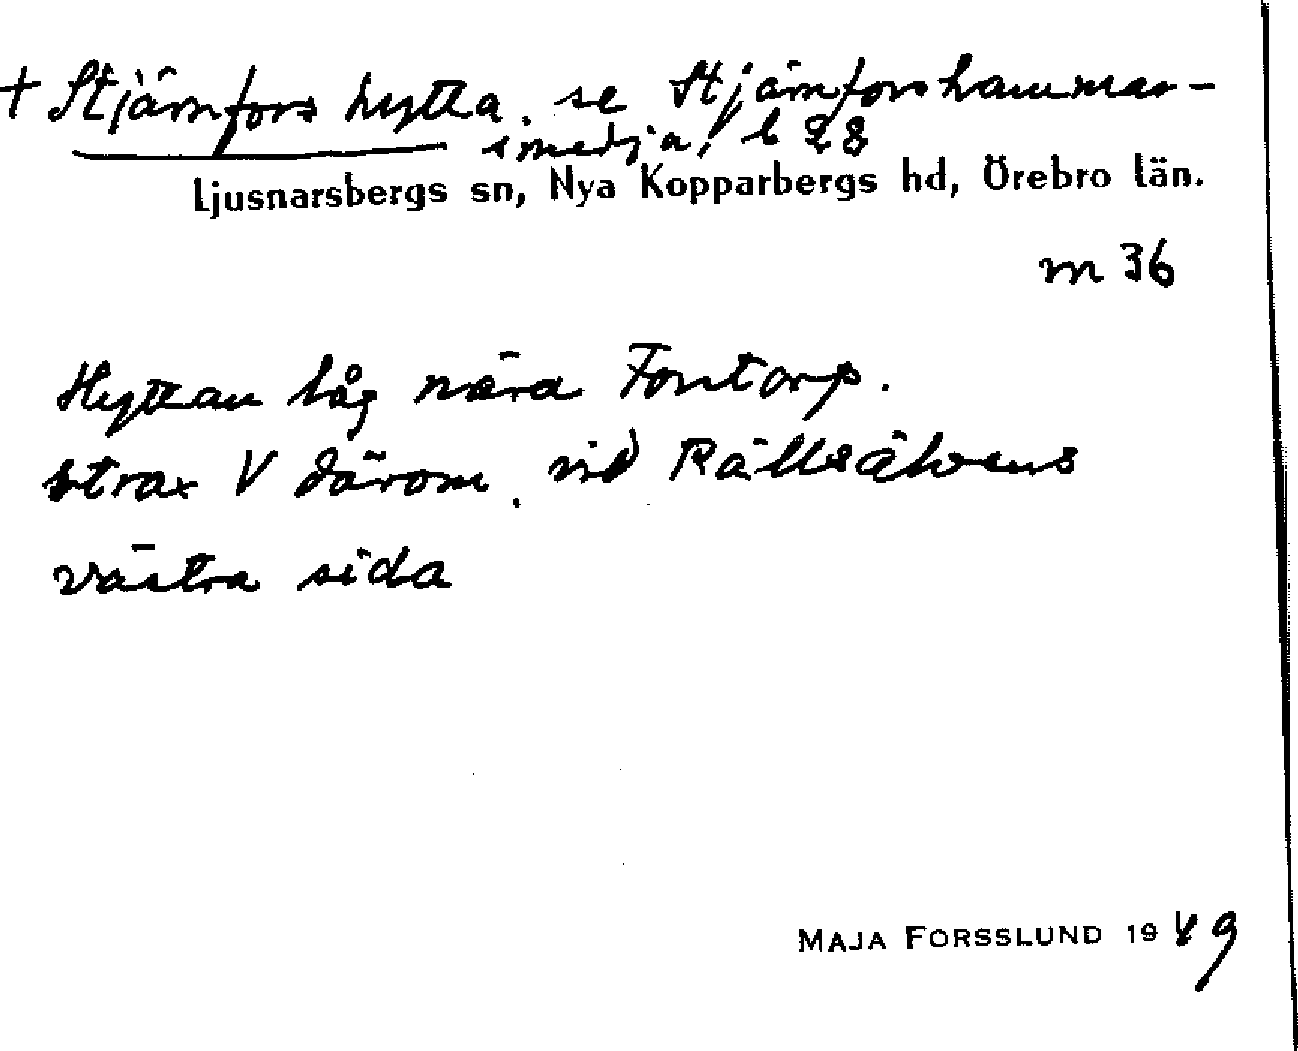 + Stjärnfors hytta, se Stjärnforshammar-
smedja, b 28
Ljusnarsbergs sn, Nya Kopparbergs hd, Örebro län.
m 36
Hyttan låg nära Forstorp.
strax V därom, vid Rällsälvens
västra sida
MAJA FORSSLUND 1949